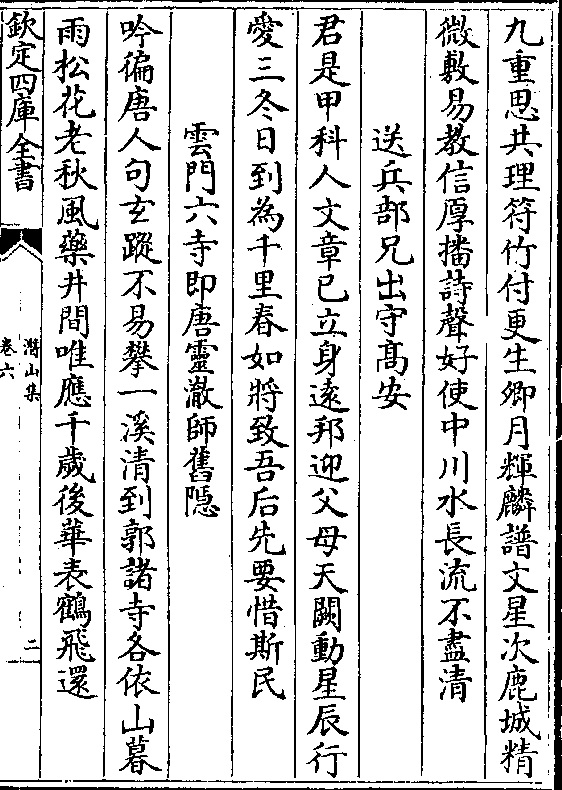 九重思共理符竹付更生卿月輝麟譜文星次鹿城精
微敷易教信厚播詩聲好使中川水長流不盡清
送兵部兄出守髙安
君是甲科人文章已立身逺邦迎父母天闕動星辰行
愛三冬日到為千里春如將致吾后先要惜斯民
雲門六寺即唐靈澈師舊隠
吟徧唐人句玄蹤不易攀一溪清到郭諸寺各依山暮
雨松花老秋風藥井間唯應千歲後華表鶴飛還
欽定四庫全書
潛山集
卷六
二